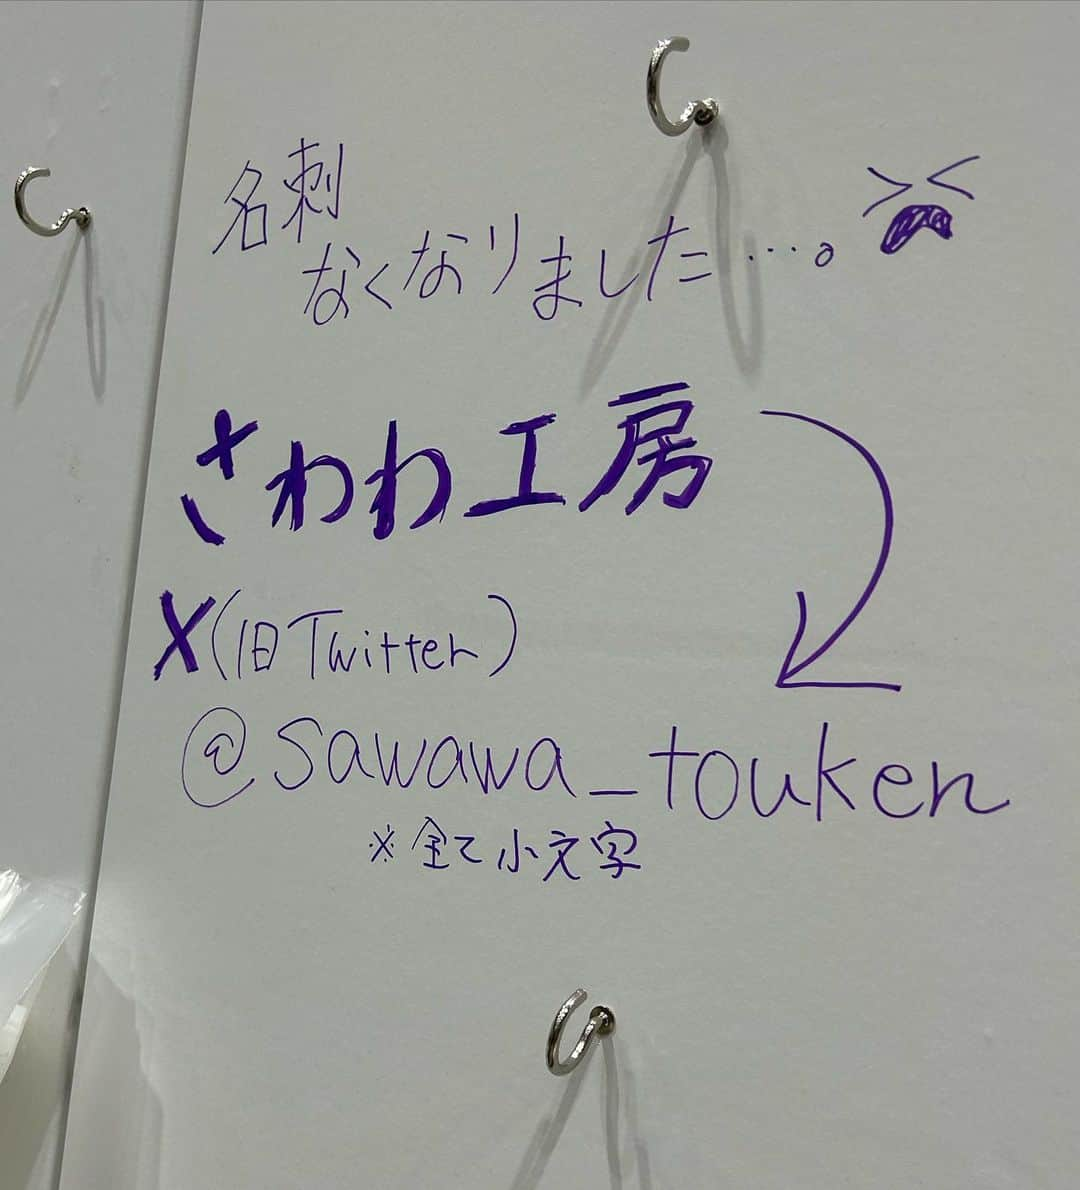 名刺
なくなりました…。
さわわ工房
X(旧Twitter)
@sawawa_touken
※全て小文字